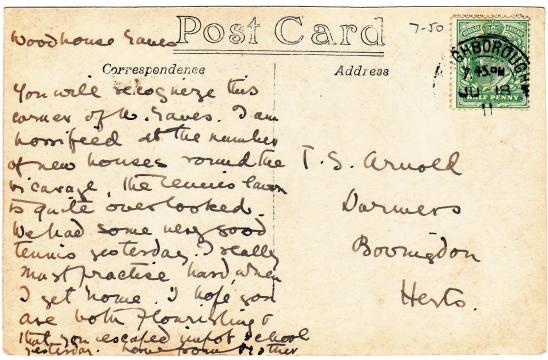 Woodhouse Eaves
Post Card
7-50
Correspondence
Address
LOUGHBOROUGH
7.45PM
JU 18
11
HALF PENNY
You will recogneze this
corner of W. Eaves. I am
horrifeed at the number
of new houses round the
vicarage, the tennis lawn
is quite overlooked.
We had some very good
tennis yesterday, I really
must practise hard, when
I get home. I hope you
are both flourishing &
that you escaped school
yesterday. home from Mother
T. S. Arnold
Darmers
Bovingdon
Herts.